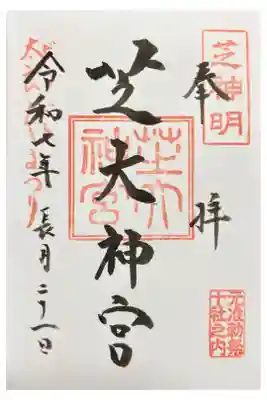 芝神明
奉拝
元准勅祭
十社之内
芝大神宮
芝大
神宮
まつり
令和七年長月二十一日